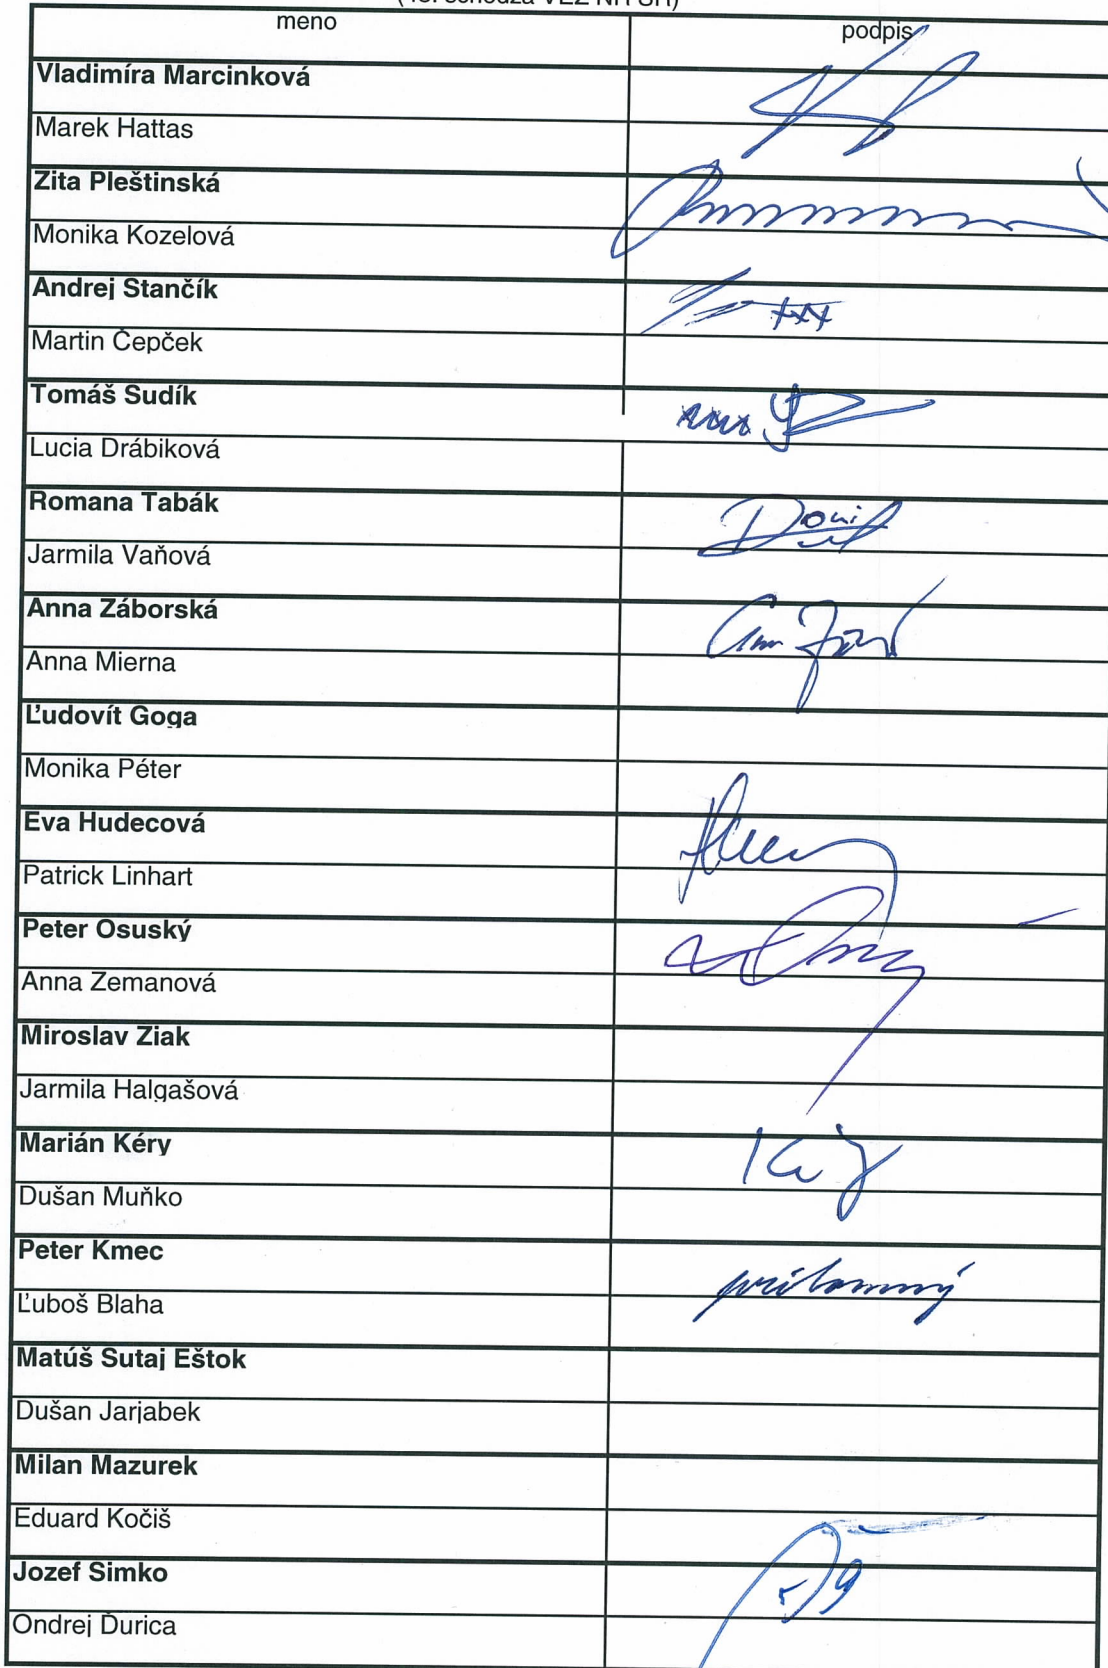 meno
podpis
Vladimíra Marcinková
Marek Hattas
Zita Pleštinská
Monika Kozelová
Andrej Stančík
Martin Čepček
Tomáš Sudík
Lucia Drábiková
Romana Tabák
Jarmila Vaňová
Anna Záborská
Anna Mierna
Ľudovít Goga
Monika Péter
Eva Hudecová
Patrick Linhart
Peter Osuský
Anna Zemanová
Miroslav Žiak
Jarmila Halgašová
Marián Kéry
Dušan Muňko
Peter Kmec
prítomný
Ľuboš Blaha
Matúš Šutaj Eštok
Dušan Jarjabek
Milan Mazurek
Eduard Kočiš
Jozef Šimko
Ondrej Ďurica